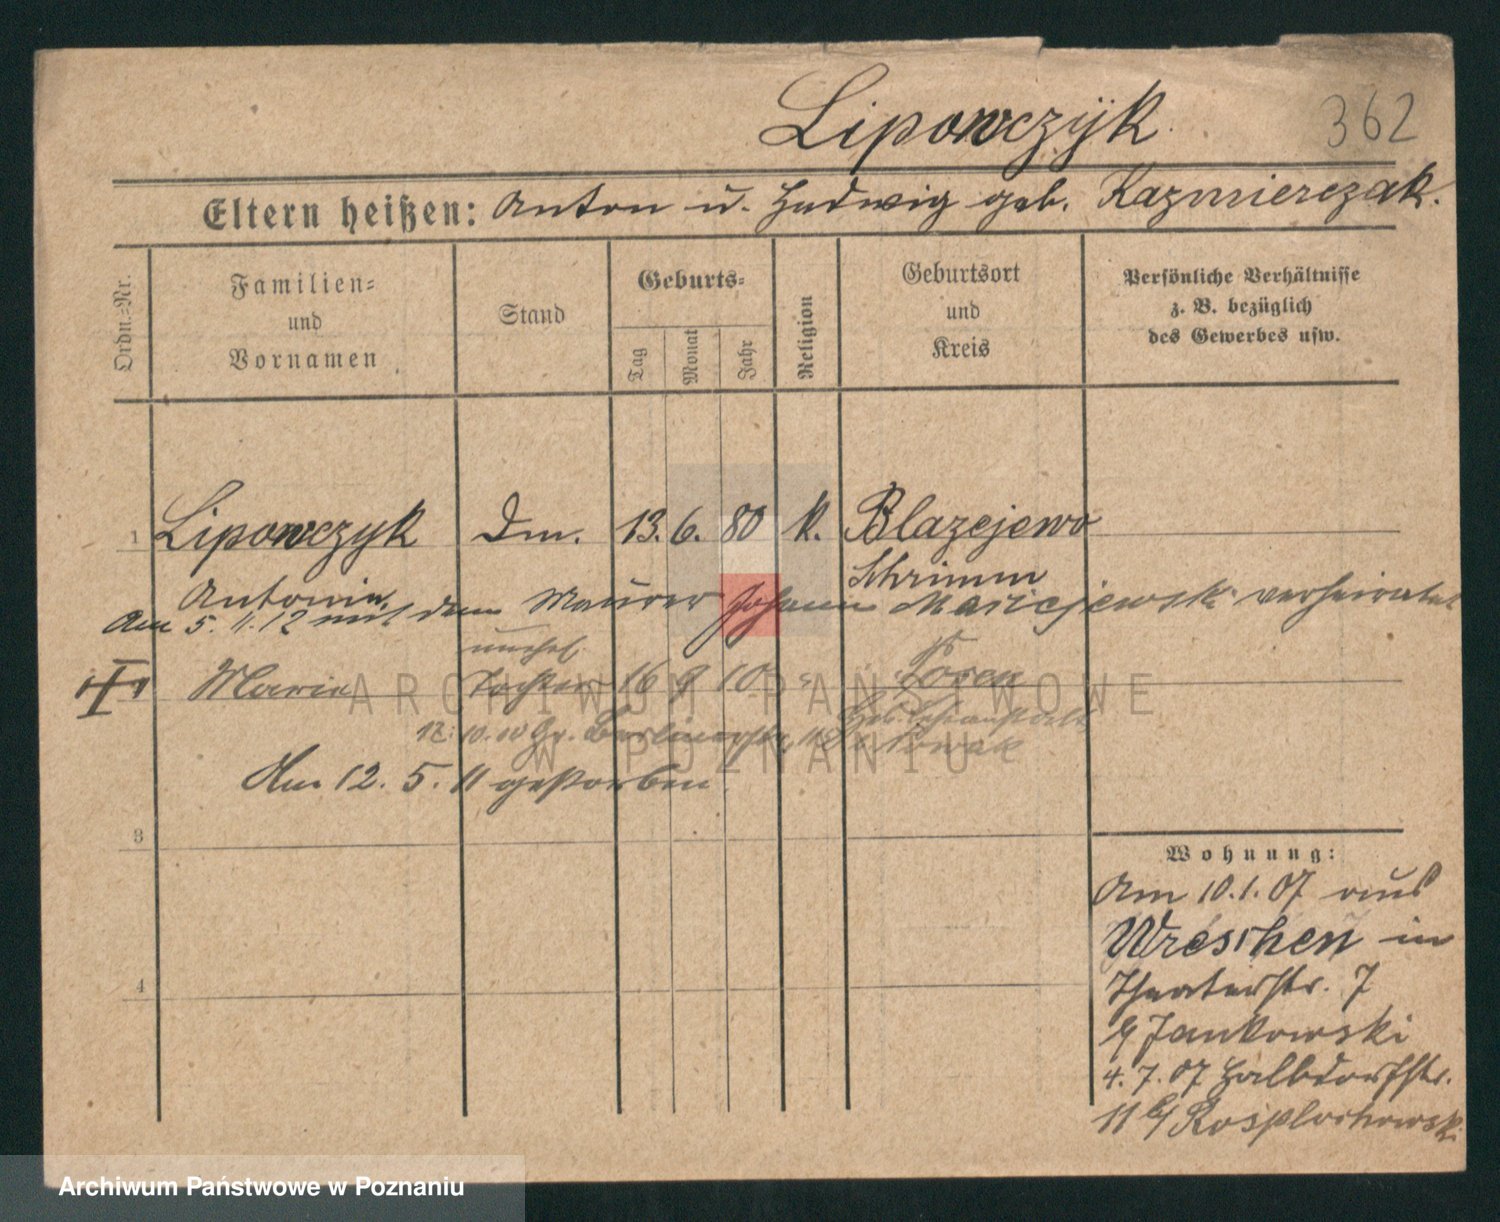 Lipowczyk 362
Eltern heißen: Anton u. Hedwig geb. Kazmierczak.
Ordn.-Nr.
Familien-
und
Vornamen
Stand
Geburts-
Tag
Monat
Jahr
Religion
Geburtsort
und
Kreis
Persönliche Verhältnisse
z. B. bezüglich
des Gewerbes usw.
1 Lipowczyk Dm. 13. 6. 80 k. Blazejewo
Antonie Schrimm
Am 5. 11. 12 mit dem Maurer Johann Maciejewski verheiratet
unehel.
Maria Tochter 16 9 10 Posen
12. 10. 10 Gr. Berlinerstr.
Nowak
Am 12. 5. 11 gestorben.
3
4
Wohnung:
Am 10. 1. 07 aus
Wreschen in
Theaterstr. 7
b/ Jankowski
4. 7. 07 Halbdorfstr.
11 b/ Rosplochowski
ARCHIWUM PAŃSTWOWE
W POZNANIU
Archiwum Państwowe w Poznaniu